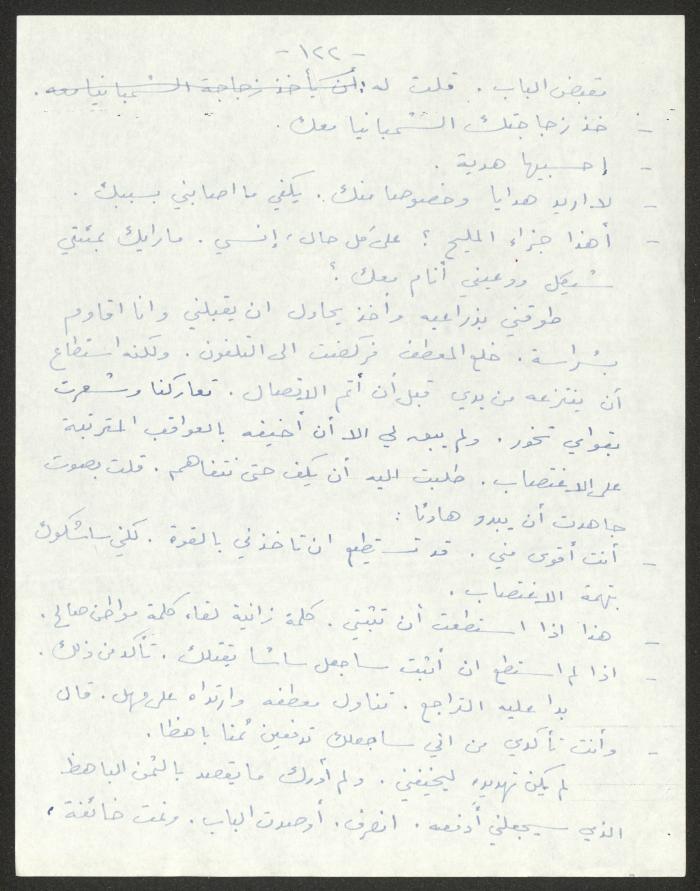 - ١٢٢ -
مقبض الباب . قلت له : أن يأخذ زجاجة الشمبانيا معه .
- خذ زجاجتك الشمبانيا معك .
- إحسبيها هدية .
- لا اريد هدايا وخصوصا منك . يكفي ما اصابني بسببك .
- أهذا جزاء المليح ؟ على كل حال ، إنسي . ما رايك بمئتي
شيكل ودعيني أنام معك ؟
طوقني بذراعيه وأخذ يحاول ان يقبلني وانا اقاوم
بشراسة . خلع المعطف فركضت الى التلفون . ولكنه استطاع
أن ينتزعه من يدي قبل أن أتم الاتصال . تعاركنا وشعرت
بقواي تخور . ولم يبق لي الا أن أخيفه بالعواقب المترتبة
على الاغتصاب . طلبت اليه أن يكف حتى نتفاهم . قلت بصوت
جاهدت أن يبدو هادئا :
- أنت أقوى مني . قد تستطيع ان تاخذني بالقوة . لكني ساشكوك
بتهمة الاغتصاب .
- هذا اذا استطعت أن تثبتي . كلمة زانية لقاء كلمة مواطن صالح .
- اذا لم استطع ان أثبت ساجعل ساشا يقتلك . تأكد من ذلك .
بدا عليه التراجع . تناول معطفه وارتداه على مهل . قال
- وأنت تأكدي من اني ساجعلك تدفعين ثمنا باهظا .
لم يكن تهديده ليخيفني . ولم أدرك ما يقصد بالثمن الباهظ
الذي سيجعلني أدفعه . انصرف . أوصدت الباب . ونمت خائفة ،